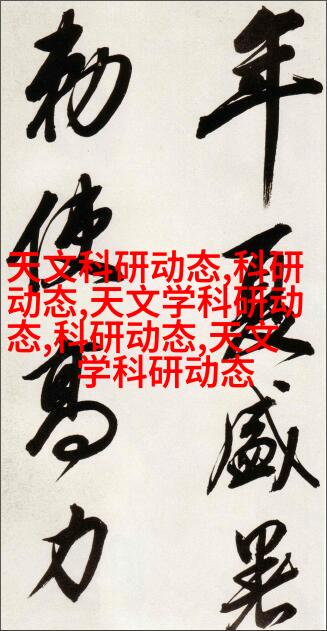 年夏盛暑
勅使高力
天文科研动态,科研
动态,天文学科研动
态,科研动态,天文
学科研动态